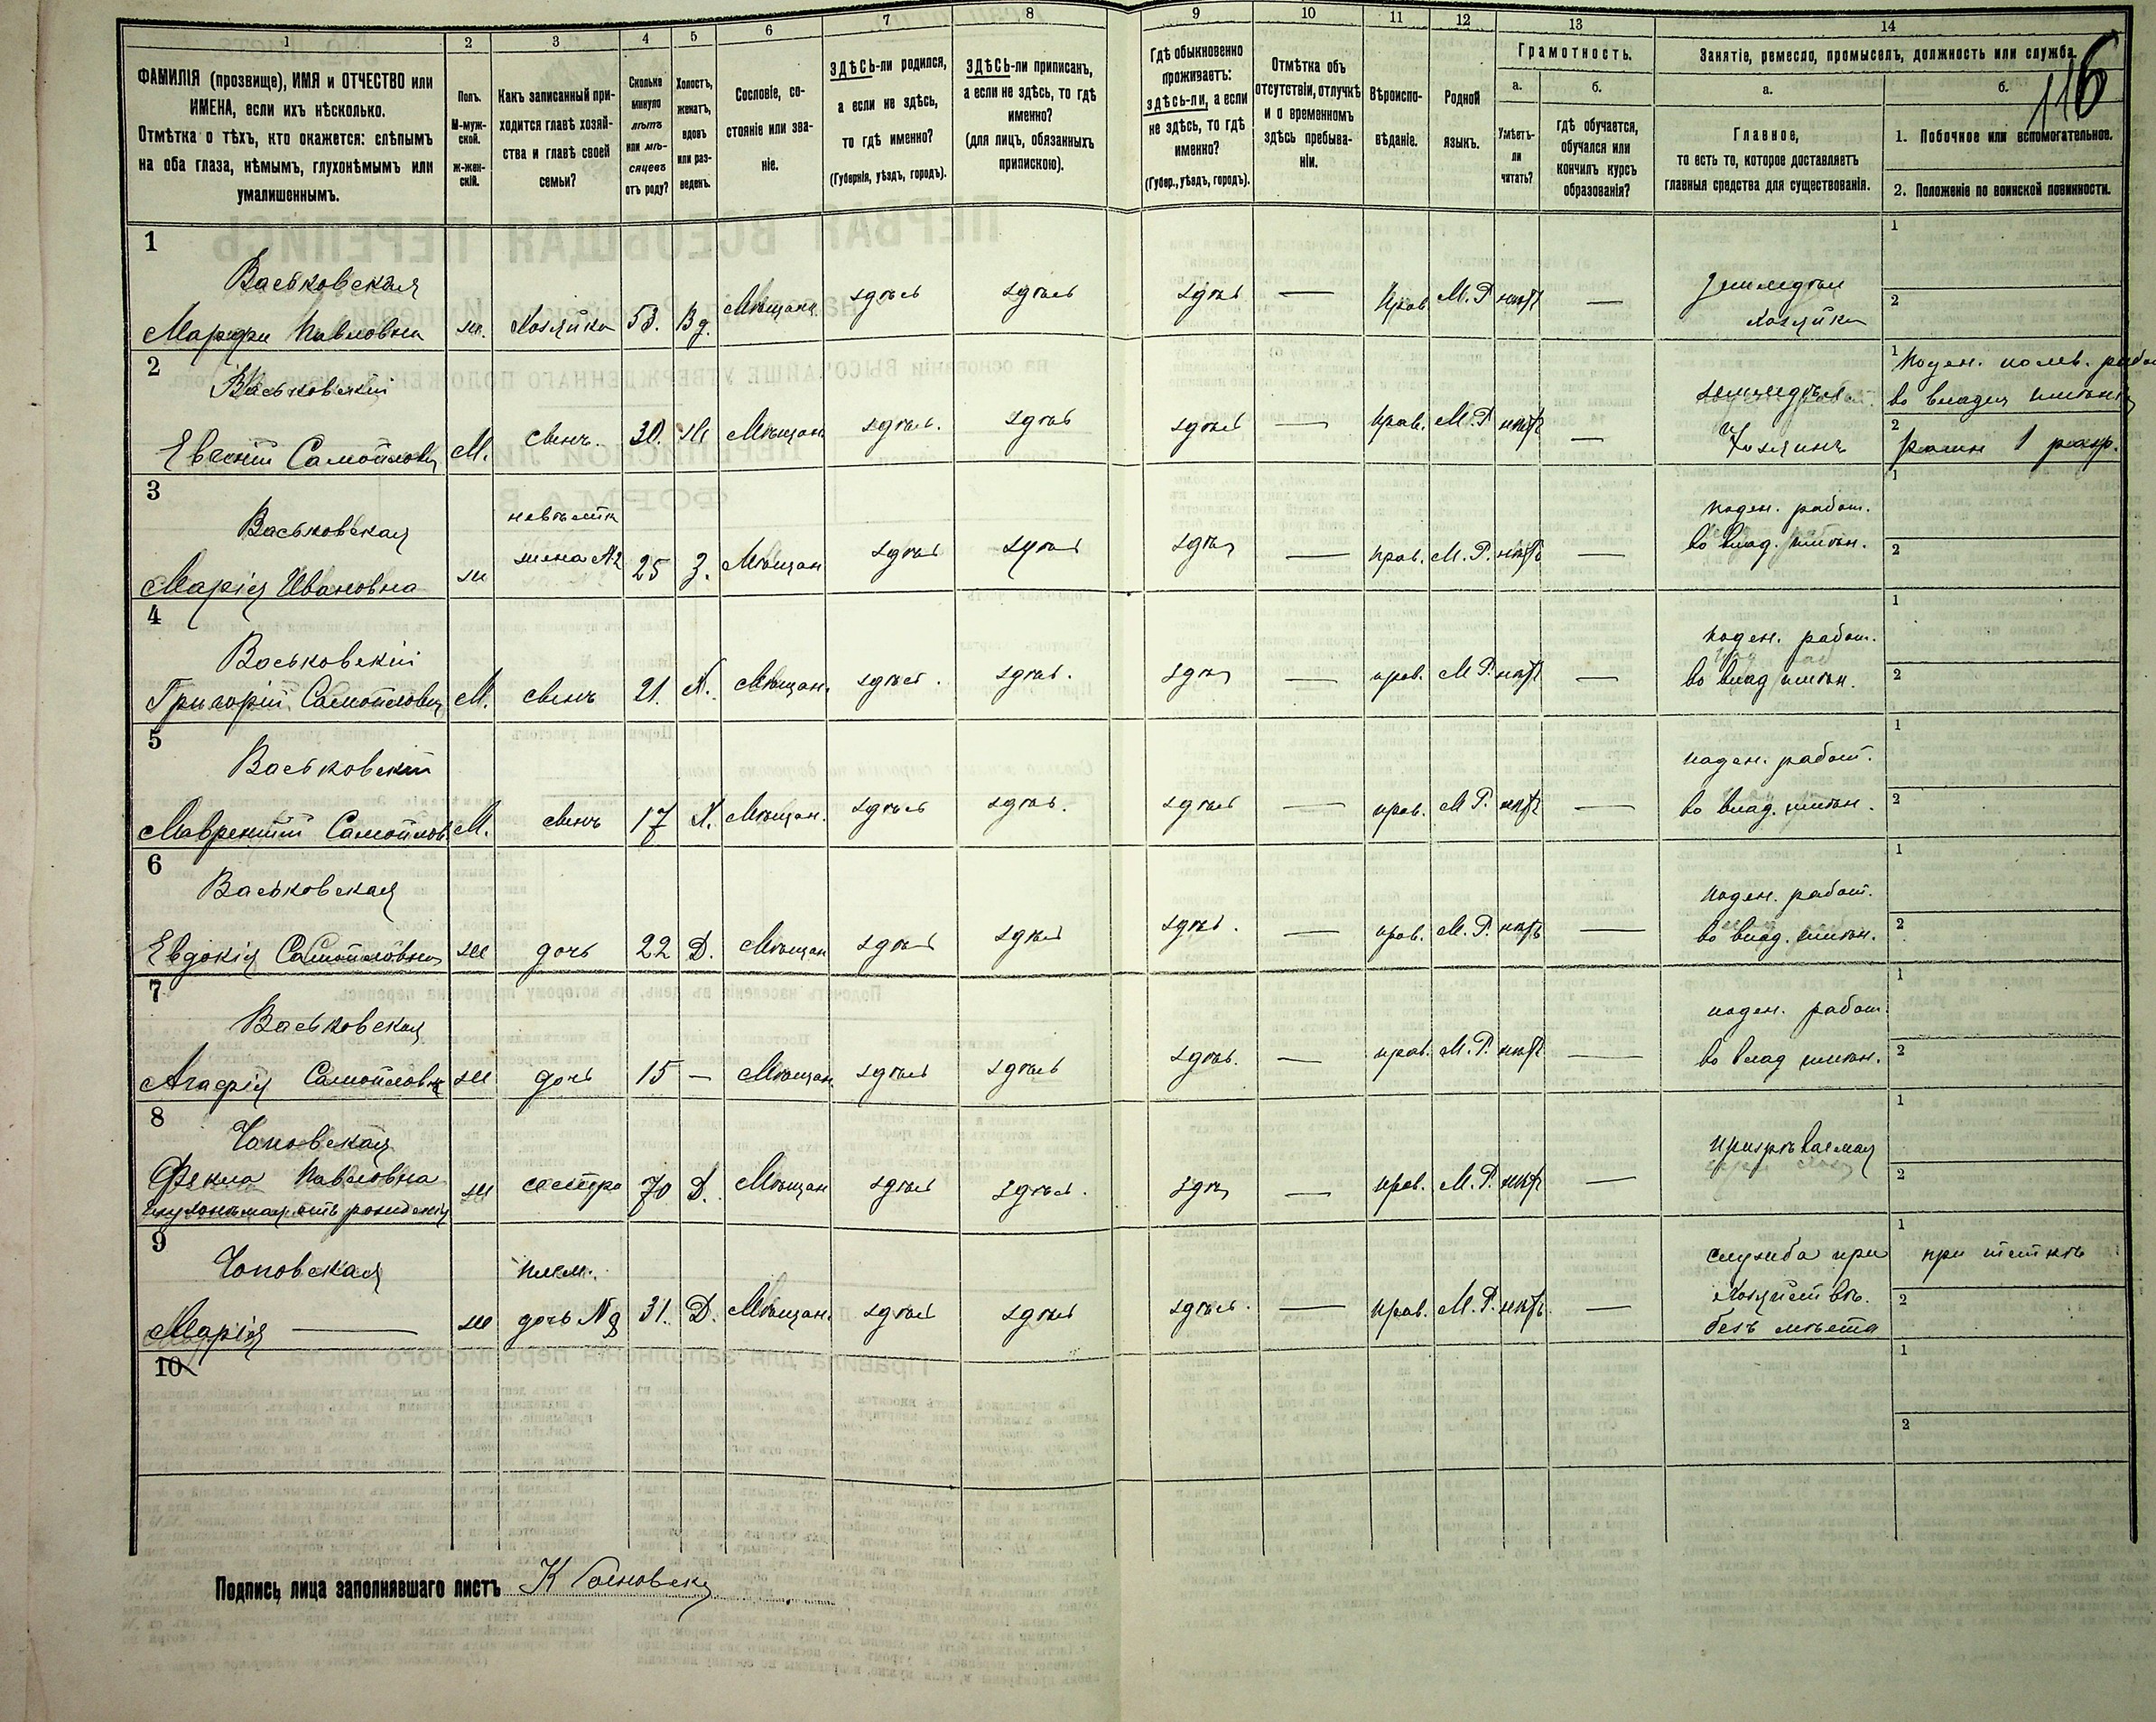 116
1 2 3 4 5 6 7 8 9 10 11 12 13 14
ФАМИЛІЯ (прозвище), ИМЯ и ОТЧЕСТВО или
ИМЕНА, если ихъ нѣсколько.
Отмѣтка о тѣхъ, кто окажется: слѣпымъ
на оба глаза, нѣмымъ, глухонѣмымъ или
умалишеннымъ.
Полъ.
М-муж-
ской.
ж-жен-
скій.
Какъ записанный при-
ходится главѣ хозяй-
ства и главѣ своей
семьи?
Сколько
минуло
лѣтъ
или мѣ-
сяцевъ
отъ роду?
Холостъ,
женатъ,
вдовъ
или раз-
веденъ.
Сословіе, со-
стояніе или зва-
ніе.
ЗДѢСЬ-ли родился,
а если не здѣсь,
то гдѣ именно?
(Губернія, уѣздъ, городъ).
ЗДѢСЬ-ли приписанъ,
а если не здѣсь, то гдѣ
именно?
(для лицъ, обязанныхъ
припискою).
Гдѣ обыкновенно
проживаетъ:
здѣсь-ли, а если
не здѣсь, то гдѣ
именно?
(Губер., уѣздъ, городъ).
Отмѣтка объ
отсутствіи, отлучкѣ
и о временномъ
здѣсь пребыва-
ніи.
Вѣроиспо-
вѣданіе.
Родной
языкъ.
Грамотность.
а.
Умѣетъ-
ли
читать?
б.
гдѣ обучается,
обучался или
кончилъ курсъ
образованія?
Занятіе, ремесло, промыселъ, должность или служба.
а.
Главное,
то есть то, которое доставляетъ
главныя средства для существованія.
б.
1. Побочное или вспомогательное.
2. Положеніе по воинской повинности.
1
Васьковская
Марфа Павловна ж. Хозяйка 53. Вд. Мѣщан. здѣсь здѣсь здѣсь — Прав. М. Р. нѣтъ —
Земледѣл
хозяйка
1
2
2
Васьковскій
Евгеній Самойлов М. сынъ. 30. Ж Мѣщан здѣсь. здѣсь здѣсь — прав. М. Р. нѣтъ —
земледѣл.
Хозяинъ
1 поден. полев. рабо
во влад. имѣн
2 ратн 1 разр.
3
Васьковская
невѣстка
Марія Ивановна ж жена №2 25 З. Мѣщан здѣсь здѣсь здѣсь — прав. М. Р. нѣтъ —
поден. работ.
во влад. имѣн.
1
2
4
Васьковскій
Григорій Самойлов М. сынъ 21. Х. Мѣщан. здѣсь. здѣсь. здѣсь — прав. М Р. нѣтъ —
поден. работ.
во влад имѣн.
1
2
5
Васьковскій
Лаврентій Самойлов. М. сынъ 17 Х. Мѣщан. здѣсь здѣсь. здѣсь — прав. М Р. нѣтъ —
поден. работ.
во влад. имѣн.
1
2
6
Васьковская
Евдокія Самойловна ж дочь 22 Д. Мѣщан здѣсь здѣсь здѣсь. — прав. М. Р. нѣтъ —
поден. работ.
во влад. имѣн.
1
2
7
Васьковская
Агафія Самойловн ж дочь 15 — Мѣщан здѣсь здѣсь здѣсь. — прав. М. Р. нѣтъ —
поден. работ.
во влад имѣн.
1
2
8
Чоповская
Фекла Павловна
глухонѣмая отъ рожденія ж сестра 70 Д. Мѣщан здѣсь здѣсь. здѣсь — прав. М. Р. нѣтъ —
призрѣваемая
1
2
9
Чоповская
плем.
Марія — ж дочь №8 31. Д. Мѣщан. здѣсь здѣсь здѣсь. — прав. М. Р. нѣтъ. —
служба при
хозяйствѣ.
безъ мѣста
1 при теткѣ
2
10
1
2
Подпись лица заполнявшаго листъ К